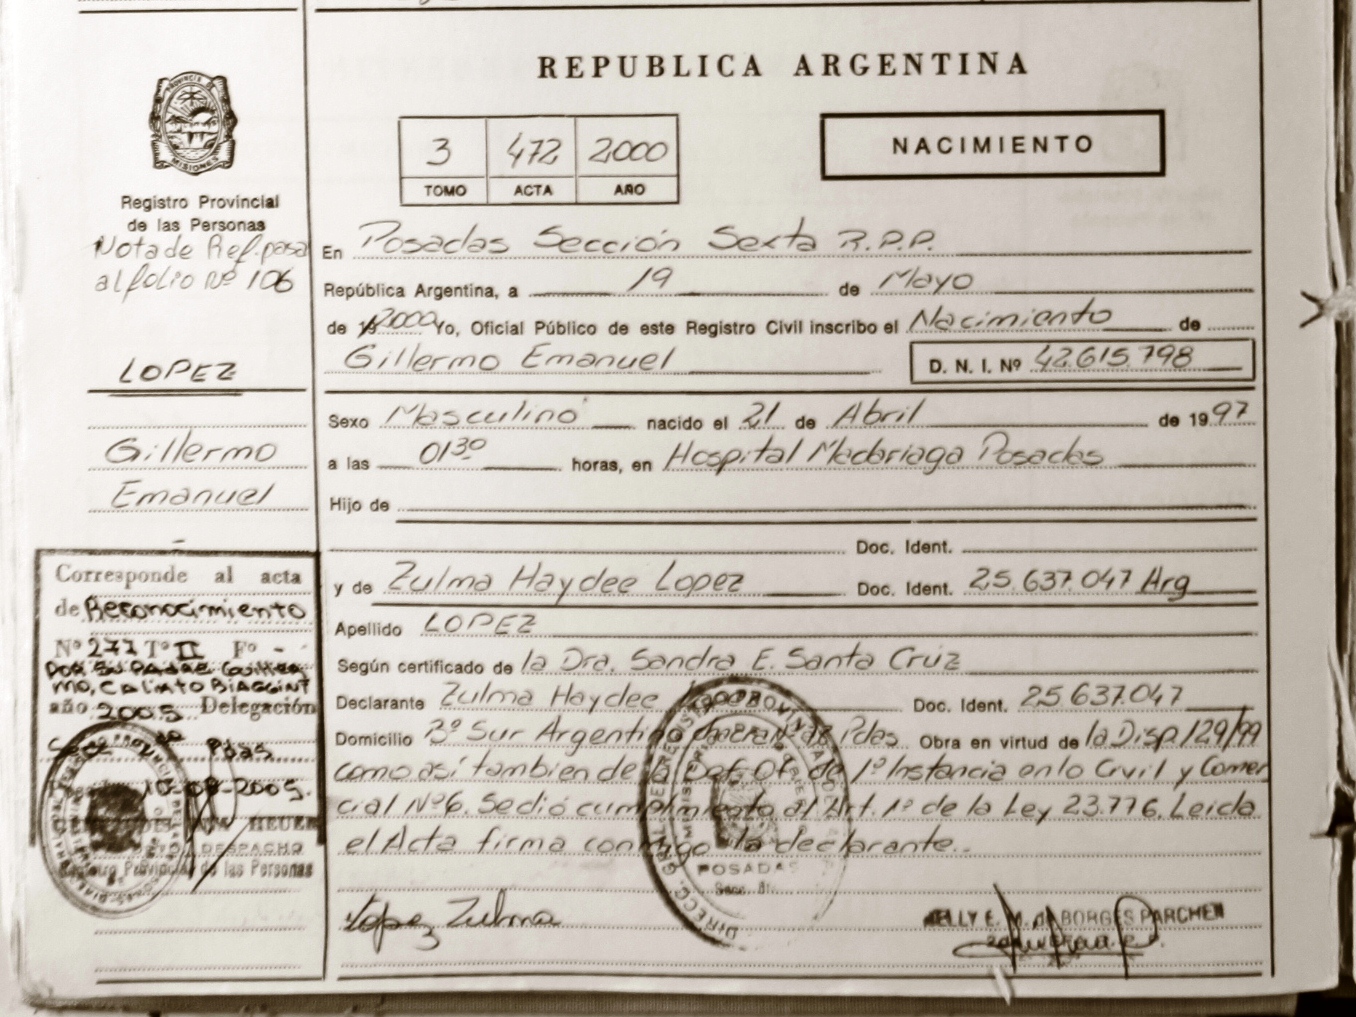 REPUBLICA ARGENTINA
PROVINCIA DE
MISIONES
Registro Provincial
de las Personas
Nota de Ref. pasa
al folio Nº 106
LOPEZ
Gillermo
Emanuel
3 472 2000
TOMO ACTA AÑO
NACIMIENTO
En Posadas Sección Sexta R.P.P.
República Argentina, a 19 de Mayo
de 2000 Yo, Oficial Público de este Registro Civil inscribo el Nacimiento de
Gillermo Emanuel D. N. I. Nº 42.615.798
Sexo Masculino nacido el 21 de Abril de 1997
a las 01³⁰ horas, en Hospital Madariaga Posadas
Hijo de
Doc. Ident.
y de Zulma Haydee Lopez Doc. Ident. 25.637.047 Arg
Apellido LOPEZ
Según certificado de la Dra. Sandra E. Santa Cruz
Declarante Zulma Haydee Lopez Doc. Ident. 25.637.047
Domicilio Bº Sur Argentino Pdas. Obra en virtud de la Disp/29/99
como así tambien de la Def. Of. de 1º Instancia en lo Civil y Comer
cial Nº6. Se dió cumplimiento al Art. 1º de la Ley 23.776. Leida
el Acta firma conmigo la declarante.
Lopez Zulma
POSADAS
NELLY E. M. de BORGES PARCHEN
Corresponde al acta
de Reconocimiento
Nº 277 Tº II Fº -
POR SU PADRE Guiller
mo, Calixto BIAGGINI
año 2005 Delegación
Pdas
10-08-2005.
HEUER
DESPACHO
Registro Provincial de las Personas